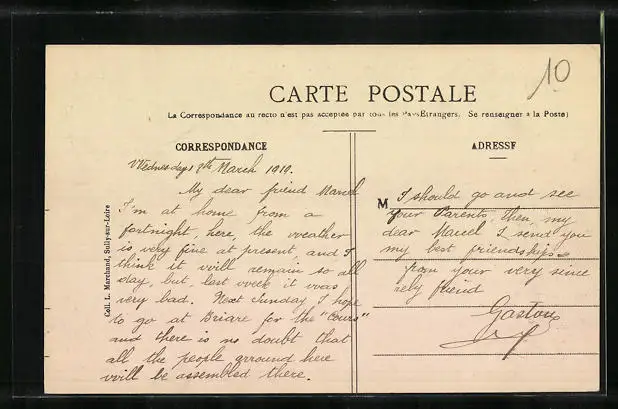 10
CARTE POSTALE
La Correspondance au recto n'est pas acceptée par tous les Pays Etrangers. Se renseigner à la Poste)
CORRESPONDANCE
Wednesday 8th March 1919.
My dear friend Marcel
I'm at home from a
fortnight, here, the weather
is very fine at present, and I
think it will remain so all
day, but, last week it was
very bad. Next Sunday I hope
to go at Briare for the "Cours"
and there is no doubt that
all the people arround here
will be assembled there.
Coll. L. Marchand, Sully-sur-Loire
ADRESSE
M
I should go and see
your Parents, then, my
dear Marcel I send you
my best friendships
from your very since
rely friend
Gaston